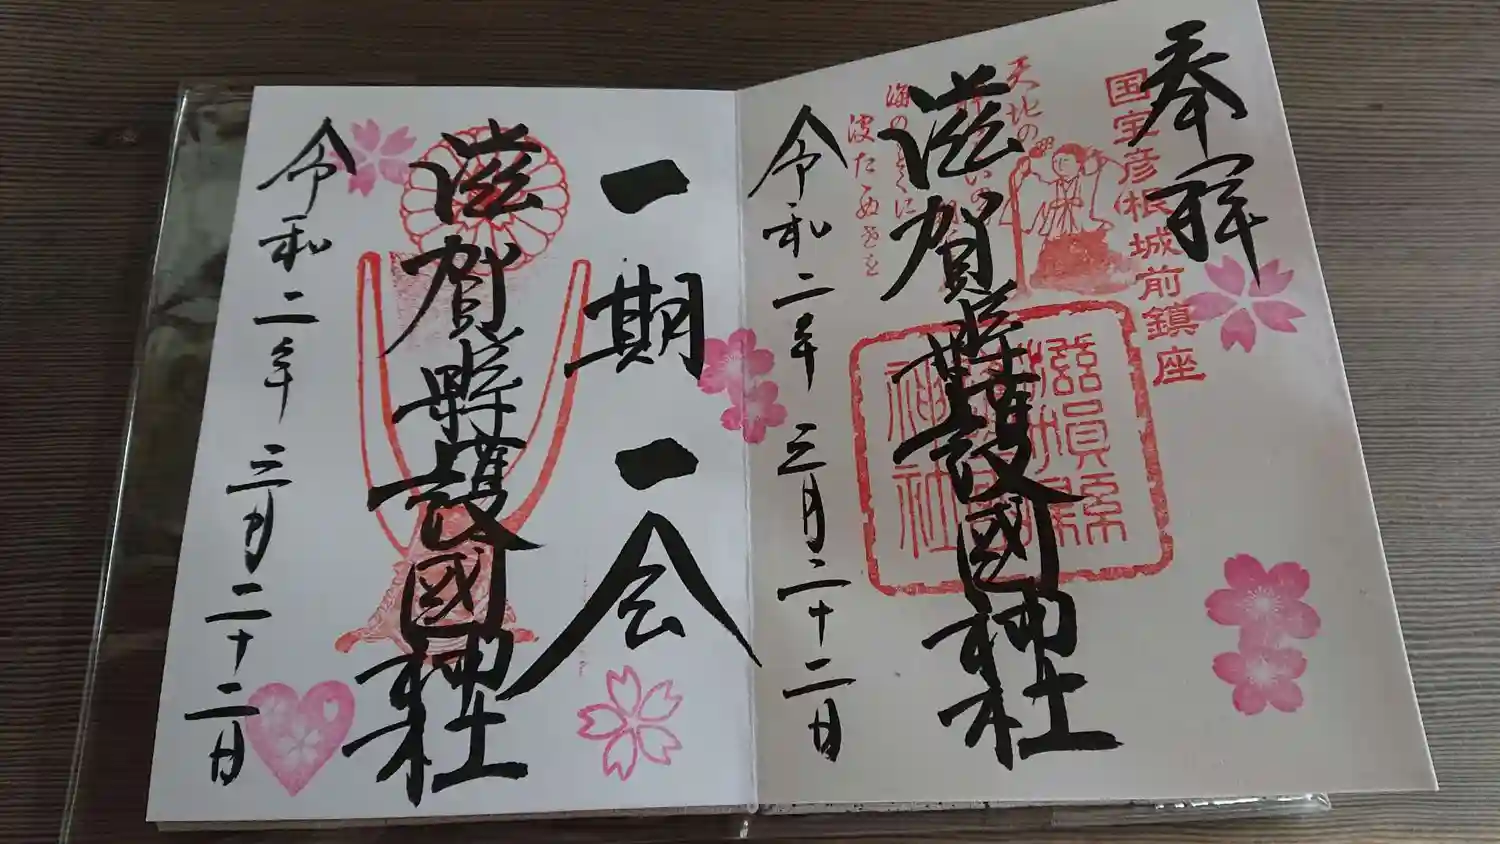 奉拝
国宝彦根城前鎮座
滋賀縣護國神社
天地の
海の
波たゝぬ
令和二年三月二十二日
一期一会
滋賀縣護國神社
令和二年三月二十二日